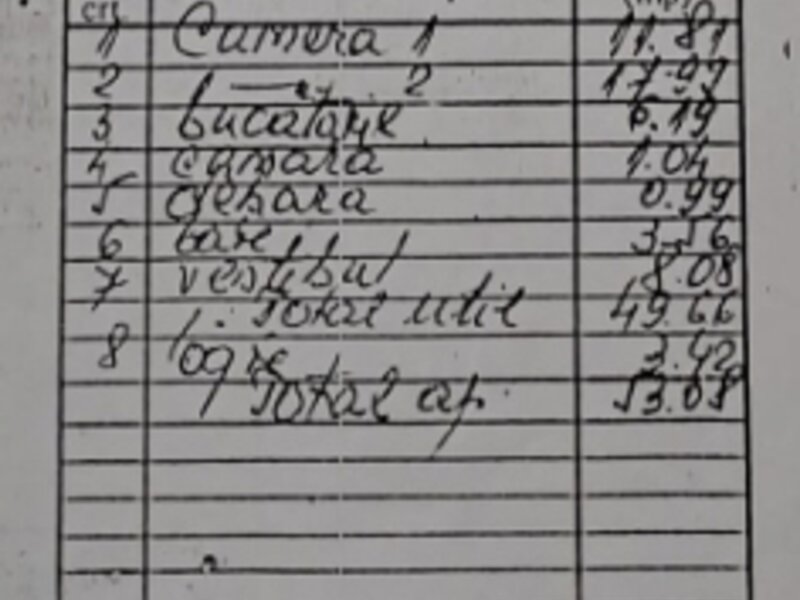 crt.
1 Camera 1 11.81
2 —"— 2 17.99
3 bucatarie 6.19
4 camara 1.04
5 debara 0.99
6 baie 3.56
7 vestibul 8.08
Total util 49.66
8 logie 3.42
Total ap. 53.08